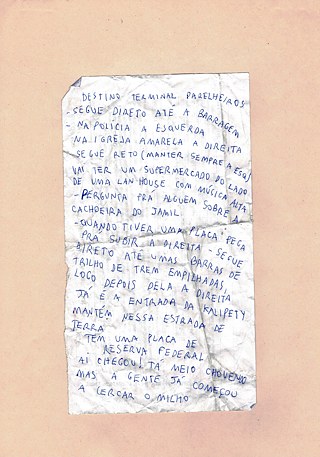 DESTINO TERMINAL PARELHEIROS
- SEGUE DIRETO ATÉ A BARRAGEM
- NA POLÍCIA A ESQUERDA
NA IGREJA AMARELA A DIREITA
SEGUE RETO (MANTER SEMPRE A ESQ)
VAI TER UM SUPERMERCADO DO LADO
DE UMA LAN HOUSE COM MÚSICA ALTA
- PERGUNTA PRA ALGUÉM SOBRE A
CACHOEIRA DO JAMIL.
- QUANDO TIVER UMA PLACA PEÇA
PRA SUBIR A DIREITA - SEGUE
DIRETO ATÉ UMAS BARRAS DE
TRILHO DE TREM EMPILHADAS,
LOGO DEPOIS DELA A DIREITA
JÁ É A ENTRADA DA KALIPETY
MANTÉM NESSA ESTRADA DE
TERRA
TEM UMA PLACA DE
RESERVA FEDERAL
AÍ CHEGOU! TÁ MEIO CHOVENDO
MAS A GENTE JÁ COMEÇOU
A CERCAR O MILHO